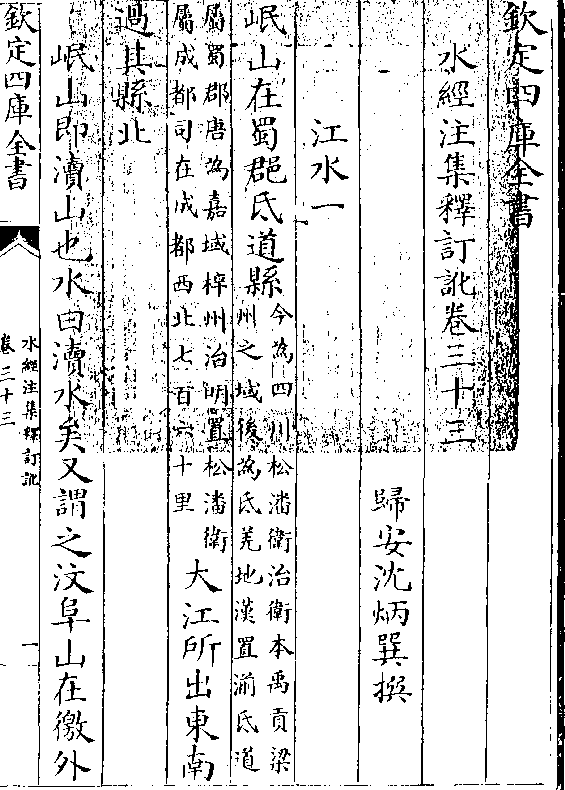 欽定四庫全書
水經注集釋訂訛卷三十三
歸安沈炳巽撰
江水一
岷山在蜀郡氐道縣今為四川松潘衛治衛本禹貢梁
州之域後為氐羌地漢置湔氐道
屬蜀郡唐為嘉域梓州治明置松潘衛
屬成都司在成都西北七百六十里大江所出東南
過其縣北
岷山即瀆山也水曰瀆水矣又謂之汶阜山在徼外
欽定四庫全書
水經注集釋訂訛
卷三十三
一